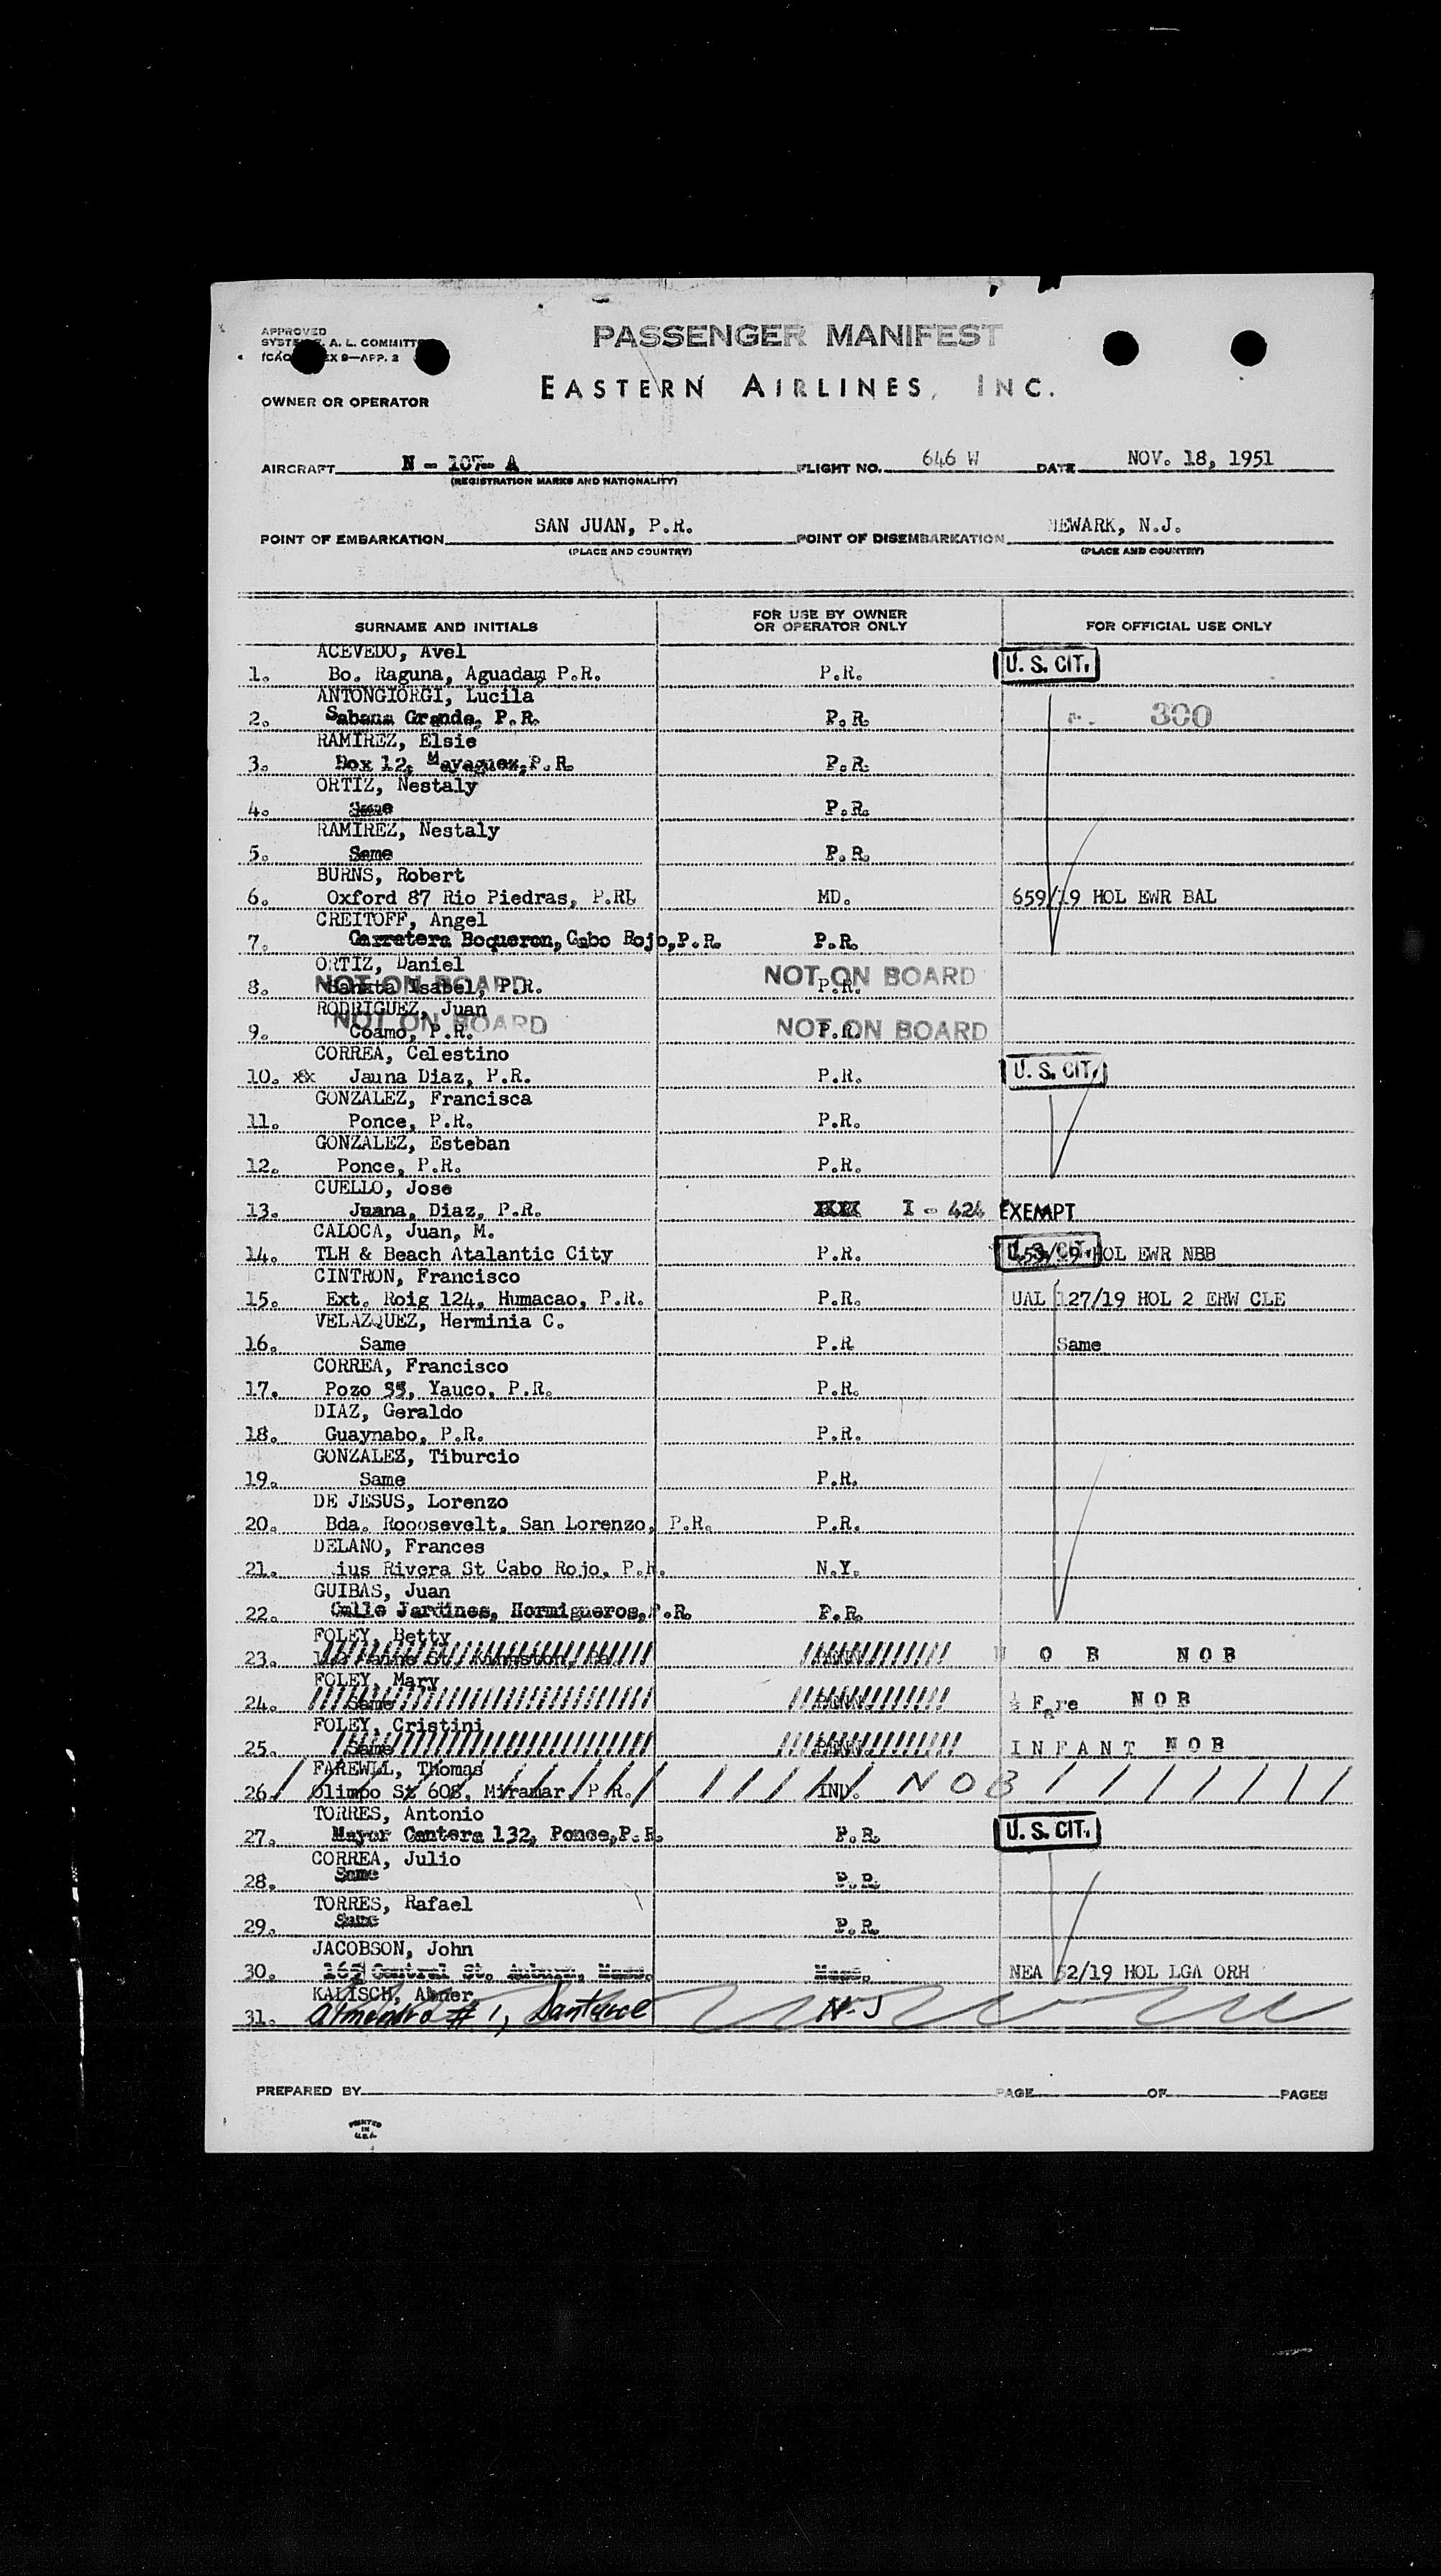 APPROVED
A. L. COMMITT
EX 9—APP. 2
PASSENGER MANIFEST
EASTERN AIRLINES, INC.
OWNER OR OPERATOR
AIRCRAFT N - A FLIGHT NO. 646 W DATE NOV. 18, 1951
(REGISTRATION MARKS AND NATIONALITY)
POINT OF EMBARKATION SAN JUAN, P.R. POINT OF DISEMBARKATION NEWARK, N.J.
(PLACE AND COUNTRY) (PLACE AND COUNTRY)
SURNAME AND INITIALS FOR USE BY OWNER OR OPERATOR ONLY FOR OFFICIAL USE ONLY
ACEVEDO, Avel
1. Bo. Raguna, Aguadam P.R. P.R. U. S. CIT.
ANTONGIORGI, Lucila
2. Sabana Grande, P.R. P.R. 300
RAMIREZ, Elsie
3. Box 12, Mayaguez, P.R. P.R.
ORTIZ, Nestaly
4. Same P.R.
RAMIREZ, Nestaly
5. Same P.R.
BURNS, Robert
6. Oxford 87 Rio Piedras, P.R. MD. 659/19 HOL EWR BAL
CREITOFF, Angel
7. Carretera Boqueron, Cabo Rojo, P.R. P.R.
ORTIZ, Daniel
NOT ON BOARD NOT ON BOARD
8. Isabel, P.R. P.R.
RODRIGUEZ, Juan
NOT ON BOARD NOT ON BOARD
9. Coamo, P.R. P.R.
CORREA, Celestino
10. xx Jauna Diaz, P.R. P.R. U. S. CIT.
GONZALEZ, Francisca
11. Ponce, P.R. P.R.
GONZALEZ, Esteban
12. Ponce, P.R. P.R.
CUELLO, Jose
13. Juana, Diaz, P.R. XXX I - 424 EXEMPT
CALOCA, Juan, M.
14. TLH & Beach Atalantic City P.R. U. S. CIT. HOL EWR NBB
CINTRON, Francisco
15. Ext. Roig 124, Humacao, P.R. P.R. UAL 127/19 HOL 2 ERW CLE
VELAZQUEZ, Herminia C.
16. Same P.R Same
CORREA, Francisco
17. Pozo 35, Yauco, P.R. P.R.
DIAZ, Geraldo
18. Guaynabo, P.R. P.R.
GONZALEZ, Tiburcio
19. Same P.R.
DE JESUS, Lorenzo
20. Bda. Rooosevelt, San Lorenzo, P.R. P.R.
DELANO, Frances
21. ius Rivera St Cabo Rojo, P.R. N.Y.
GUIBAS, Juan
22. Calle Jardines, Hormigueros, P.R. P.R.
FOLEY, Betty
23. St, Kingston, Pa. PENN N O B N O B
FOLEY, Mary
24. Same PENN ½ Fare N O B
FOLEY, Cristini
25. Same PENN I N F A N T N O B
FAREWLL, Thomas
26. Olimpo St 608, Miramar, P.R. IND. N O B
TORRES, Antonio
27. Mayor Cantera 132, Ponce, P.R. P.R. U. S. CIT.
CORREA, Julio
28. Same P.R.
TORRES, Rafael
29. Same P.R.
JACOBSON, John
30. Central St. Auburn, Mass. Mass. NEA 52/19 HOL LGA ORH
KALISCH, Abner
31. Almendro # 1, Santurce N-J
PREPARED BY PAGE OF PAGES
PRINTED
IN
U.S.A.